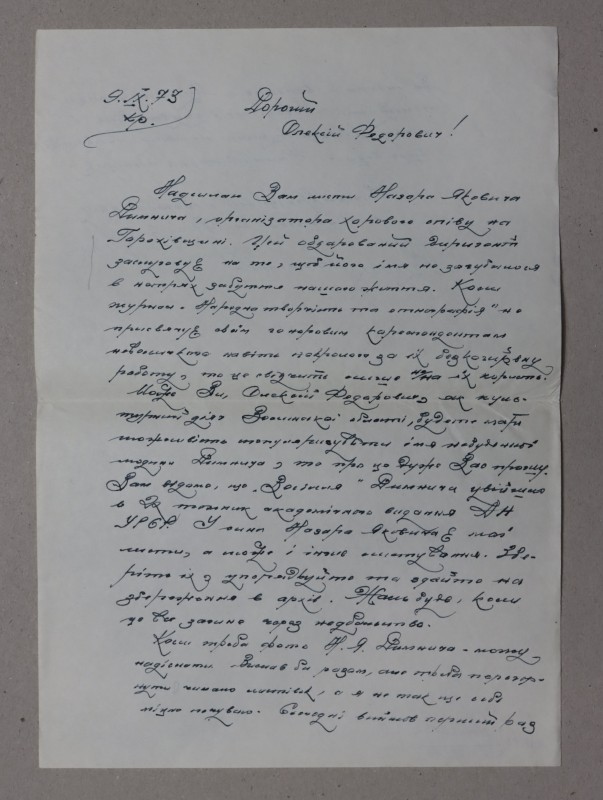 9.IX.73
кр.
Дорогий
Олексій Федорович!
Надсилаю Вам листи Назара Яковича
Димнича, організатора хорового співу на
Горохівщині. Цей обдарований диригент
заслуговує на те, щоб його імя не загубилося
в нетрях забуття нашого життя. Коли
журнал "Народна творчість та етнографія" не
присвячує своїм чоровим кареспондентам
навіть некролога за їх безкорисну
роботу, то це свідчить лише не на їх користь.
Може Ви, Олексій Федорович, як куль-
турний діяч Волинської області, будете мати
можливість популяризувати імя небуденної
людини Димнича, то про це дуже Вас прошу.
Вам відомо, що "Весілля" Димнича увійшло
в 2й томник академічного видання АН
УРСР. У сина Назара Яковича є мої
листи, а може і інше листування. Збе-
ріть їх, упорядкуйте та здайте на
збереження в архів. Жаль буде, коли
це все загине через недбальство.
Коли треба фото Н. Я. Димнича - можу
надіслати. Вислав би разом, але треба перегор-
нути чимало листівок, а я не так ще себе
міцно почуваю. Сьогодні вийшов перший раз